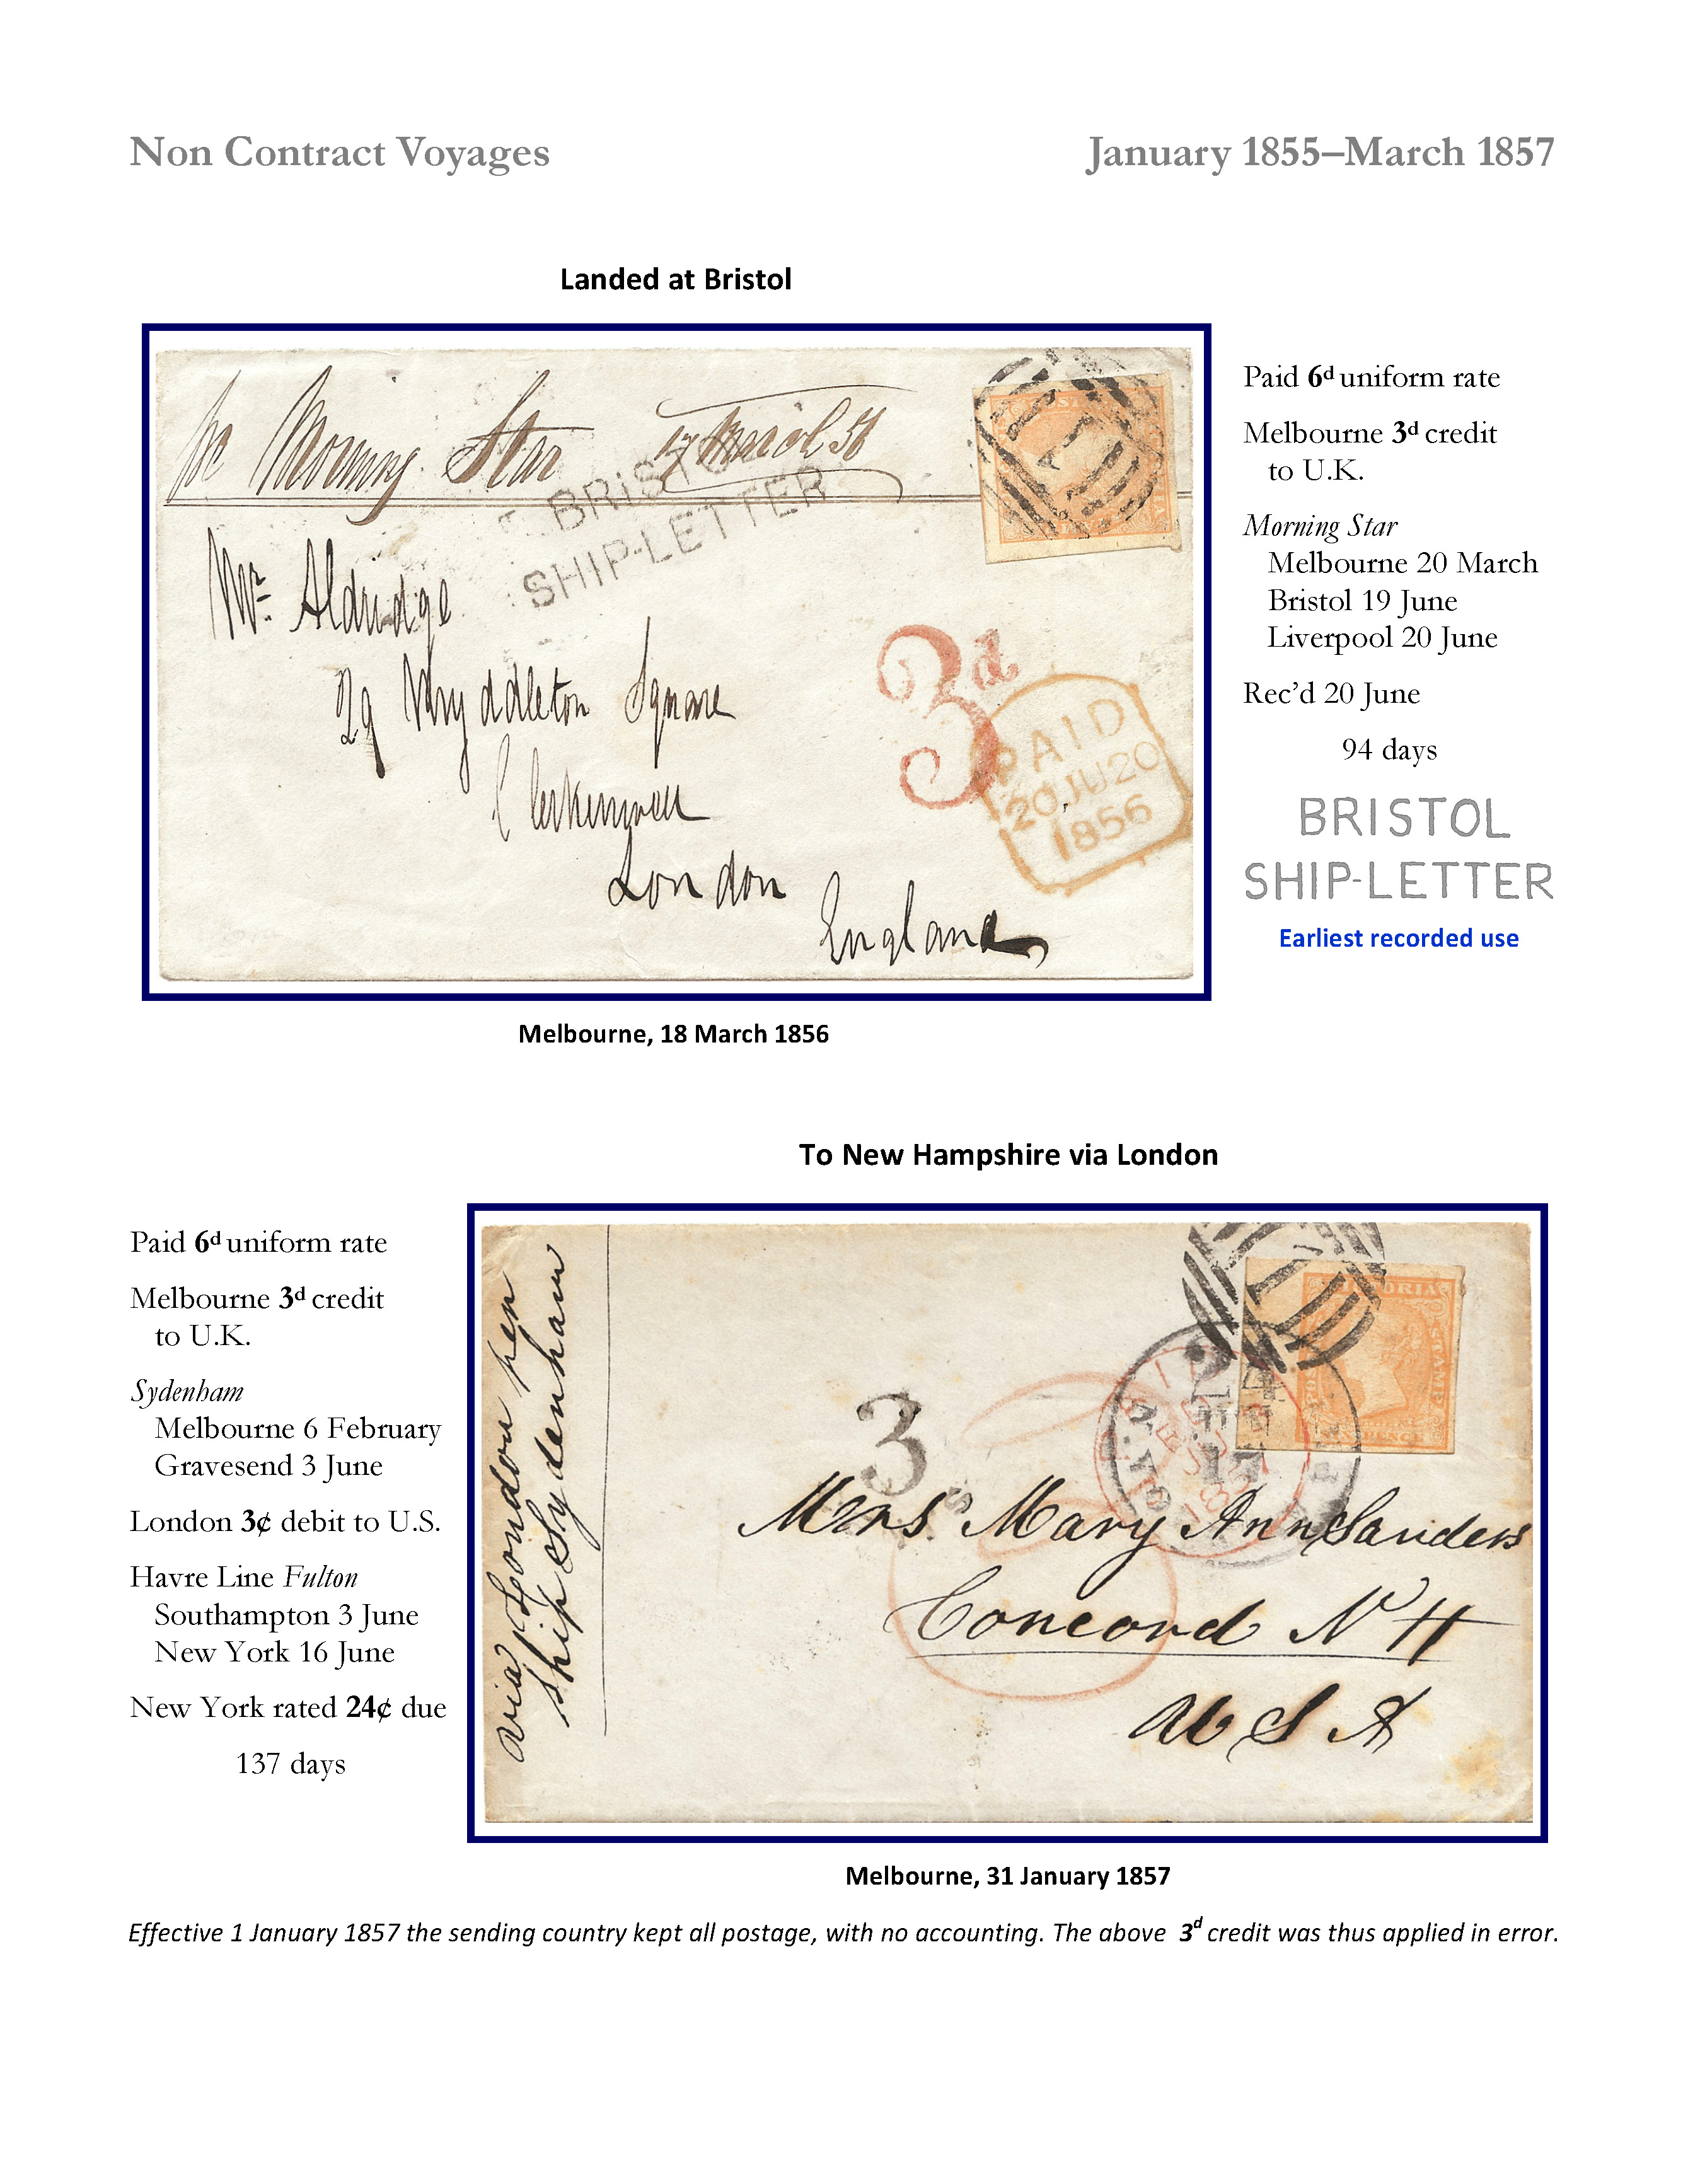 Non Contract Voyages
January 1855–March 1857
Landed at Bristol
per Morning Star 17 March 56
BRISTOL
SHIP-LETTER
Mr. Aldridge
29 Myddleton Square
Clerkenwell
London
England
3d
PAID
20 JU 20
1856
Paid 6d uniform rate
Melbourne 3d credit
to U.K.
Morning Star
Melbourne 20 March
Bristol 19 June
Liverpool 20 June
Rec’d 20 June
94 days
BRISTOL
SHIP-LETTER
Earliest recorded use
Melbourne, 18 March 1856
To New Hampshire via London
Paid 6d uniform rate
Melbourne 3d credit
to U.K.
Sydenham
Melbourne 6 February
Gravesend 3 June
London 3¢ debit to U.S.
Havre Line Fulton
Southampton 3 June
New York 16 June
New York rated 24¢ due
137 days
via London per
ship Sydenham
VICTORIA
POSTAGE
STAMP
24
JUN
17
3
Mrs Mary Ann Sanders
Concord N H
U S A
Melbourne, 31 January 1857
Effective 1 January 1857 the sending country kept all postage, with no accounting. The above 3d credit was thus applied in error.